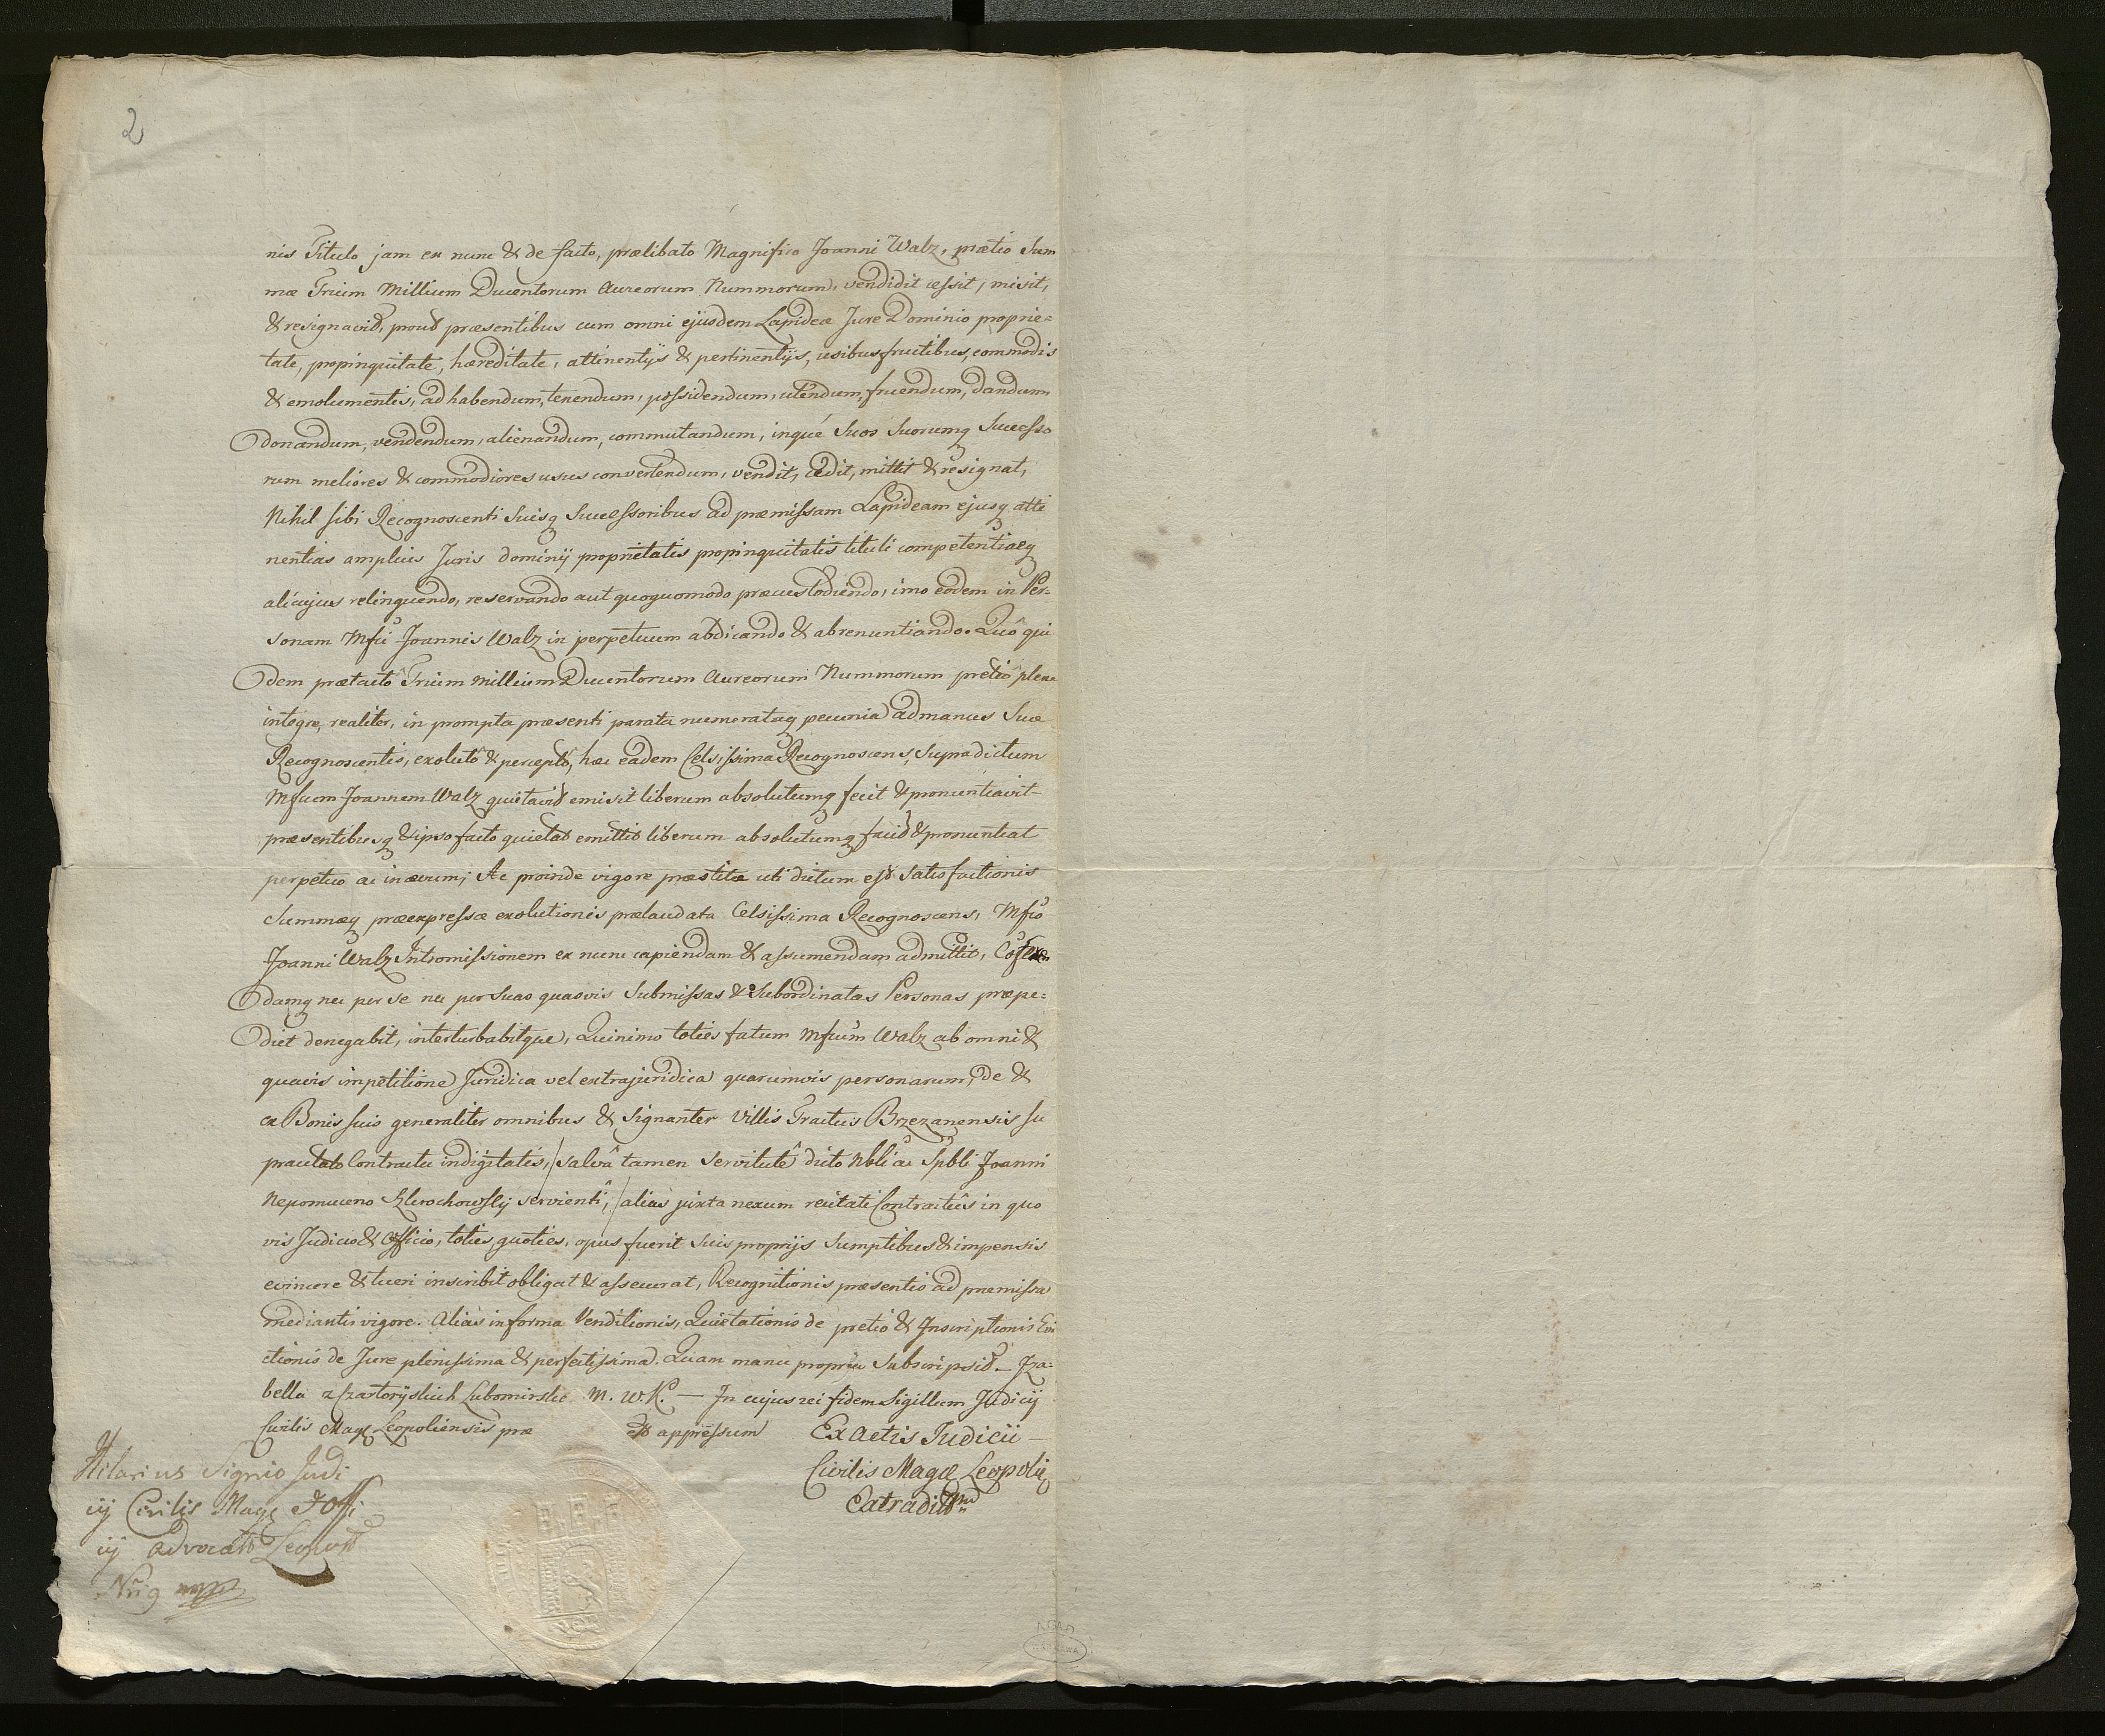 2
nis Titulo jam ex nunc & de facto, prælibato Magnifico Joanni Walz, prætio Sum
mæ Trium Millium Ducentorum Aureorum Nummorum, vendidit cessit, misit,
& resignavit, prout præsentibus cum omni ejusdem Lapideæ Jure Dominio proprie=
tate, propinquitate, hæreditate, attinentijs & pertinentijs, usibus fructibus, commodis
& emolumentis, ad habendum, tenendum, possidendum, utendum, fruendum, dandum
donandum, vendendum, alienandum, commutandum, inqué Suos Suorumq Successo
rum meliores & commodiores usus convertendum, vendit, cedit, mittit & resignat,
Nihil sibi Recognoscenti Suisq Successoribus ad præmissam Lapideam ejusq atti
nentias amplius Juris dominij proprietatis propinquitatis tituli competentiaeq
alicujus relinquendo, reservando aut quoquomodo præcustodiendo, imo eodem in Per=
sonam Mfci Joannis Walz in perpetuum abdicando & abrenuntiando. Quô qui
dem prætactô Trium Millium Ducentorum Aureorum Nummorum pretiô plene
integre, realiter, in prompta præsenti parata numerataq pecunia ad manus Suæ
Recognoscentis, exolutô & perceptô, hæc eadem Celsissima Recognoscens, Supradictum
Mfcum Joannem Walz quietavit emisit liberum absolutumq fecit & pronuntiavit
præsentibusq & ipso facto quietat emittit liberum absolutumq facit & pronuntiat
perpetuo ac in ævum; Ac proinde vigore præstitæ uti dictum est Satisfactionis
Summæq præexpressæ exolutionis prælaudata Celsissima Recognoscens, Mfco
Joanni Walz Intromissionem ex nunc capiendam & assumendam admittit,
damq nec per se nec per Suas quasvis Submissas & Subordinatas Personas præpe=
diet denegabit, interturbabitque, Quinimo toties fatum Mfcum Walz ab omni &
quavis impetitione Juridica vel extrajuridica quarumvis personarum, de &
ex Bonis suis generaliter omnibus & Signanter Villis Tractus Brzezanensis su
pracitato Contractu indigitatis, / salvâ tamen Servitutê dicto Nbli ac Spbli Joanni
Nepomuceno servienti, / alias juxta nexum recitati Contractûs in quo
vis Judicio & Officio, toties, quoties, opus fuerit Suis proprijs Sumptibus & impensis
evincere & tueri inscribit obligat & assecurat, Recognitionis præsentis ad præmissa
mediantis vigore. Alias in forma Venditionis, Quietationis de pretio & Inscriptionis Evi
ctionis de Jure plenissima & perfectissima. Quam manu propria Subscripsit _ Iza=
bella z Czartoryskich Lubomirska M. W. K. — In cujus rei fidem Sigillum Judicij
Civilis Magd Leopoliensis præ est appressum
Ex Actis Iudicii
Civilis Magd Leopolien
Extraditum
Hilarius Signio Judi
cij Civilis Magd & Offi
cij Advocatt Leopol